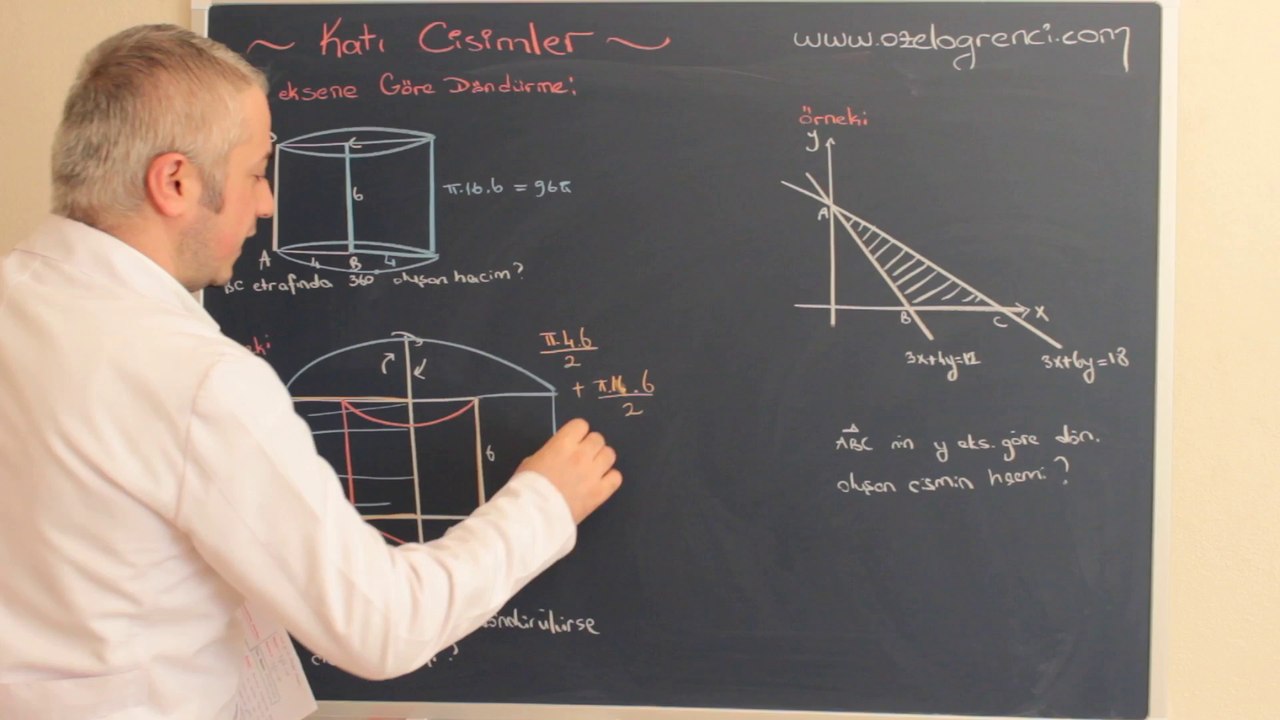 ~ Katı Cisimler ~
www.ozelogrenci.com
eksene Göre Döndürme:
6
π.16.6 = 96π
A 4 B 4
BC etrafında 360° oluşan hacim?
π.4.6
2
+ π.16.6
2
6
döndürülürse
?
örnek:
y
A
B
C
x
3x+4y=12
3x+6y=18
ABC nin y eks. göre dön.
oluşan cismin hacmi?